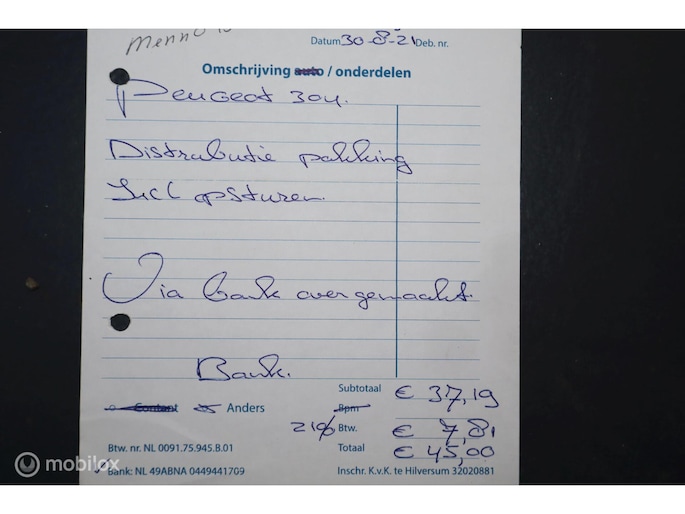 Menno
Datum 30-8-21 Deb. nr.
Omschrijving auto / onderdelen
Peugeot 304.
Distributie pakking
Incl opsturen.
Via bank overgemaakt.
Bank.
Subtotaal € 37,19
Contant Anders Bpm
21% Btw. € 7,81
Totaal € 45,00
Btw. nr. NL 0091.75.945.B.01
Bank: NL 49ABNA 0449441709 Inschr. K.v.K. te Hilversum 32020881
mobilox